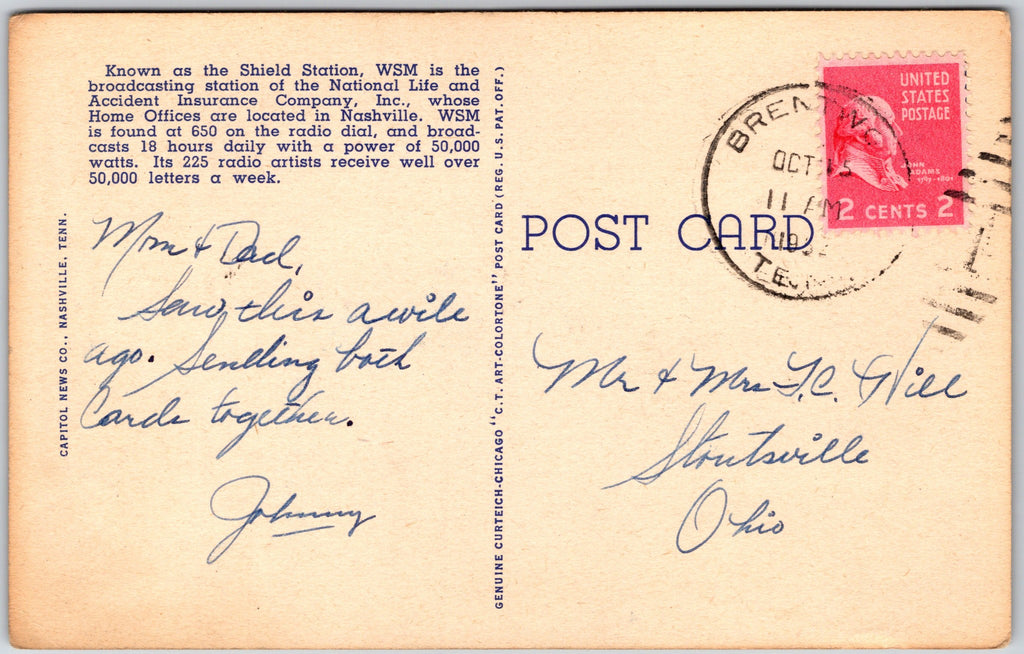 Known as the Shield Station, WSM is the
broadcasting station of the National Life and
Accident Insurance Company, Inc., whose
Home Offices are located in Nashville. WSM
is found at 650 on the radio dial, and broad-
casts 18 hours daily with a power of 50,000
watts. Its 225 radio artists receive well over
50,000 letters a week.
CAPITOL NEWS CO., NASHVILLE, TENN.
Mom & Dad,
Saw this awile
ago. Sending both
Cards together.
Johnny
GENUINE CURTEICH-CHICAGO "C.T. ART-COLORTONE" POST CARD (REG. U.S. PAT. OFF.)
POST CARD
BRENTWO
OCT 15
11 AM
TENN
UNITED
STATES
POSTAGE
JOHN
ADAMS
1797-1801
2 CENTS 2
Mr & Mrs F.C. Hill
Stoutsville
Ohio